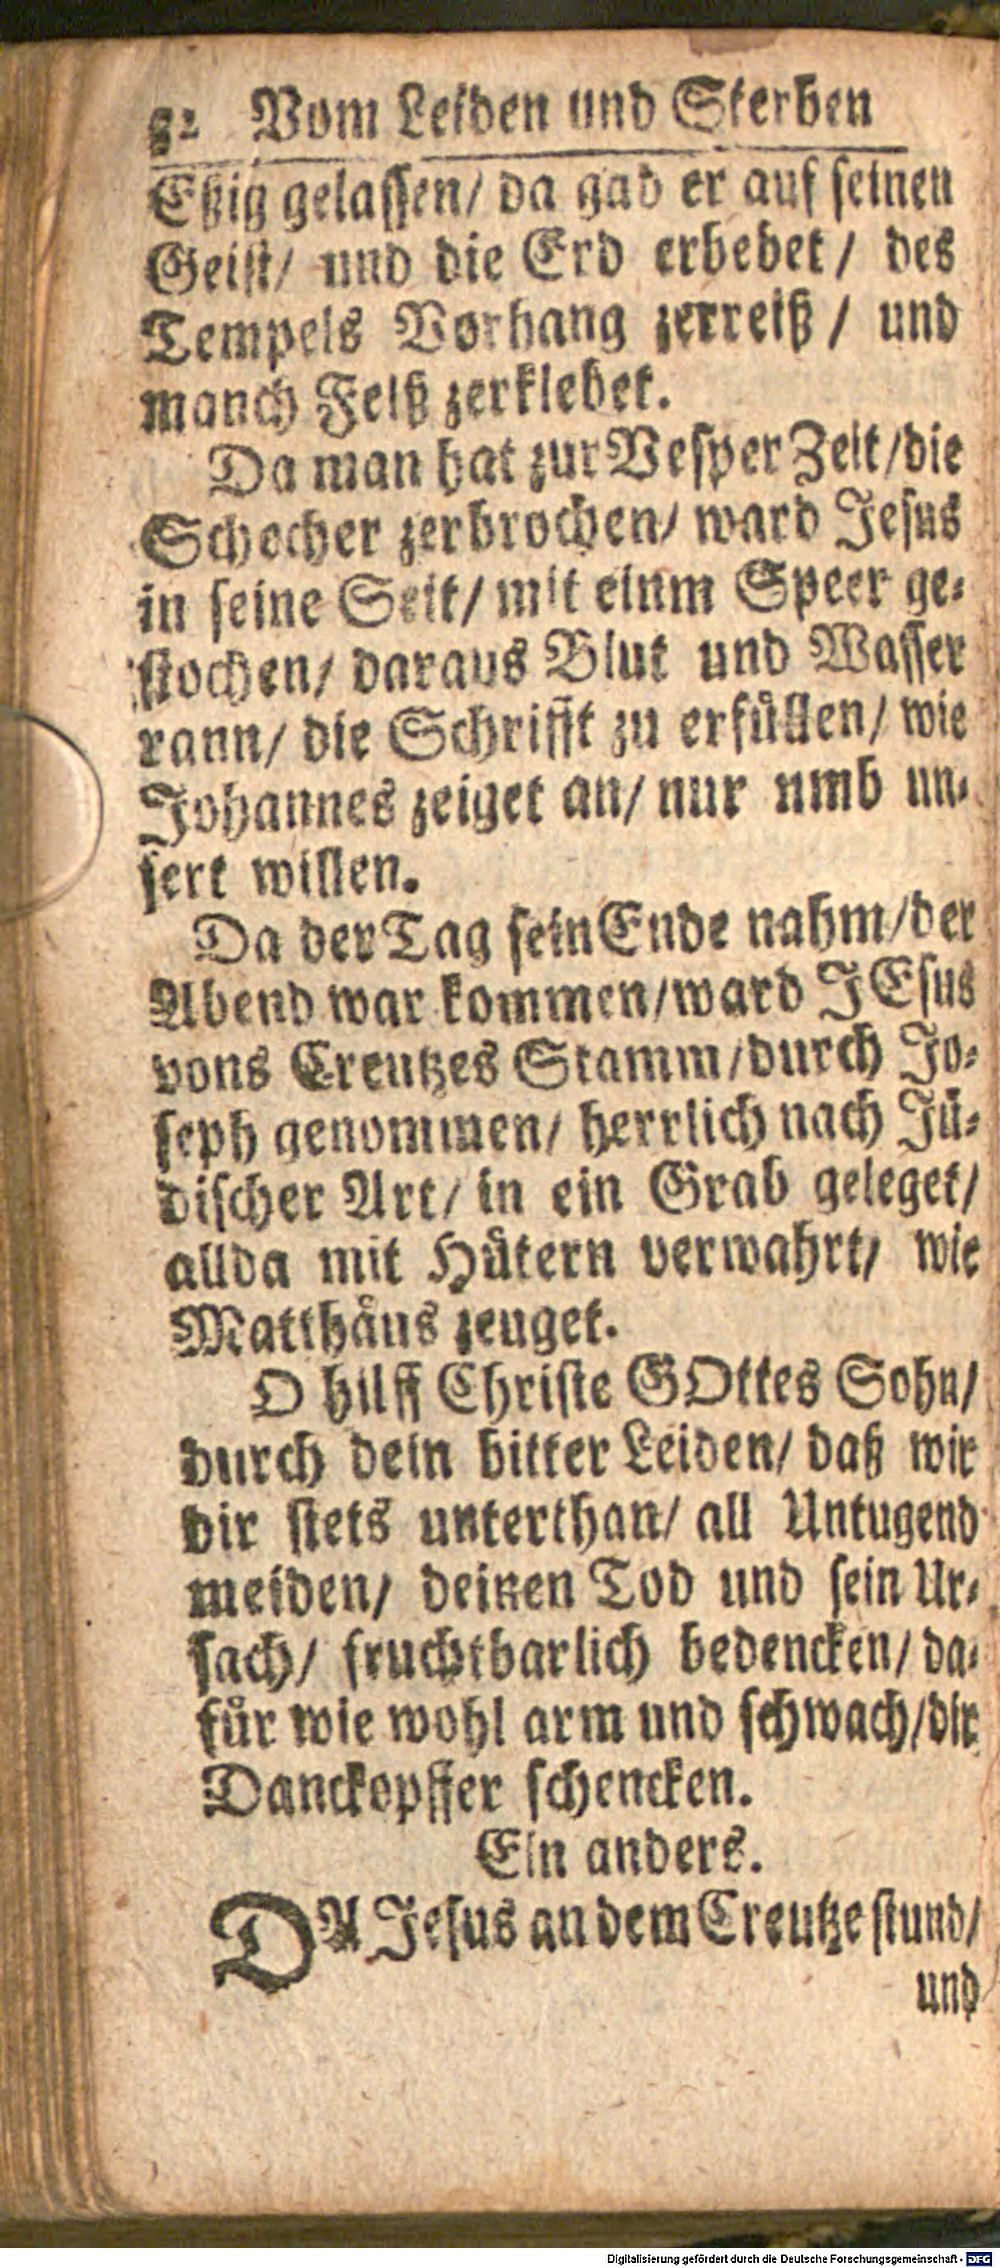 Vom Leiden und Sterben
Eßig gelassen/ da gab er auf seinen
Geist/ und die Erd erbebet/ des
Tempels Vorhang zerreiß/ und
manch Felß zerklebet.
Da man hat zur Vesper Zeit/die
Schecher zerbrochen/ ward Jesus
in seine Seit/ mit einm Speer ge-
stochen/ daraus Blut und Wasser
rann/ die Schrifft zu erfüllen/ wie
Johannes zeiget an/ nur umb un-
sert willen.
Da der Tag sein Ende nahm/der
Abend war kommen/ward JEsus
vons Creutzes Stamm/durch Jo-
seph genommen/ herrlich nach Jü-
discher Art/ in ein Grab geleget/
allda mit Hütern verwahrt/ wie
Matthäus zeuget.
O hilff Christe GOttes Sohn/
durch dein bitter Leiden/ daß wir
dir stets unterthan/ all Untugend
meiden/ deinen Tod und sein Ur-
sach/ fruchtbarlich bedencken/ da-
für wie wohl arm und schwach/dir
Danckopffer schencken.
Ein anders.
DA Jesus an dem Creutze stund/
und
Digitalisierung gefördert durch die Deutsche Forschungsgemeinschaft - DFG